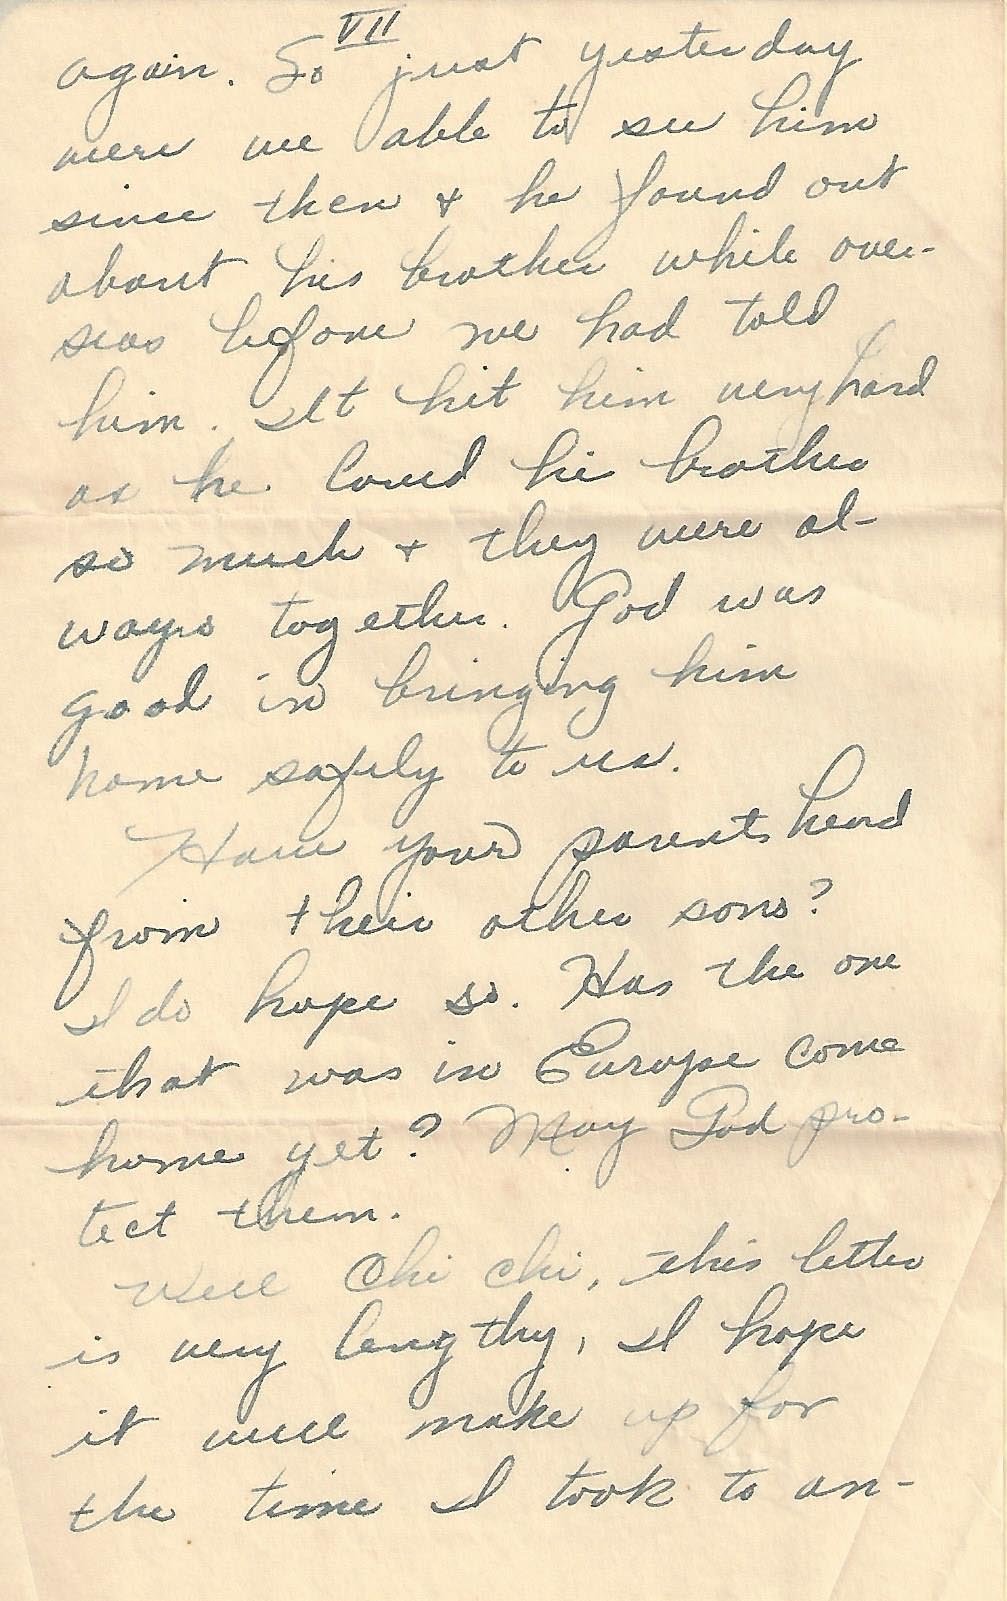 VII
again. So just yesterday
were we able to see him
since then + he found out
about his brother while over-
seas before we had told
him. It hit him very hard
as he loved his brother
so much + they were al-
ways together. God was
good in bringing him
home safely to us.
Have your parents heard
from their other sons?
I do hope so. Has the one
that was in Europe come
home yet? May God pro-
tect them.
Well Chi Chi, this letter
is very lengthy, I hope
it will make up for
the time I took to an-